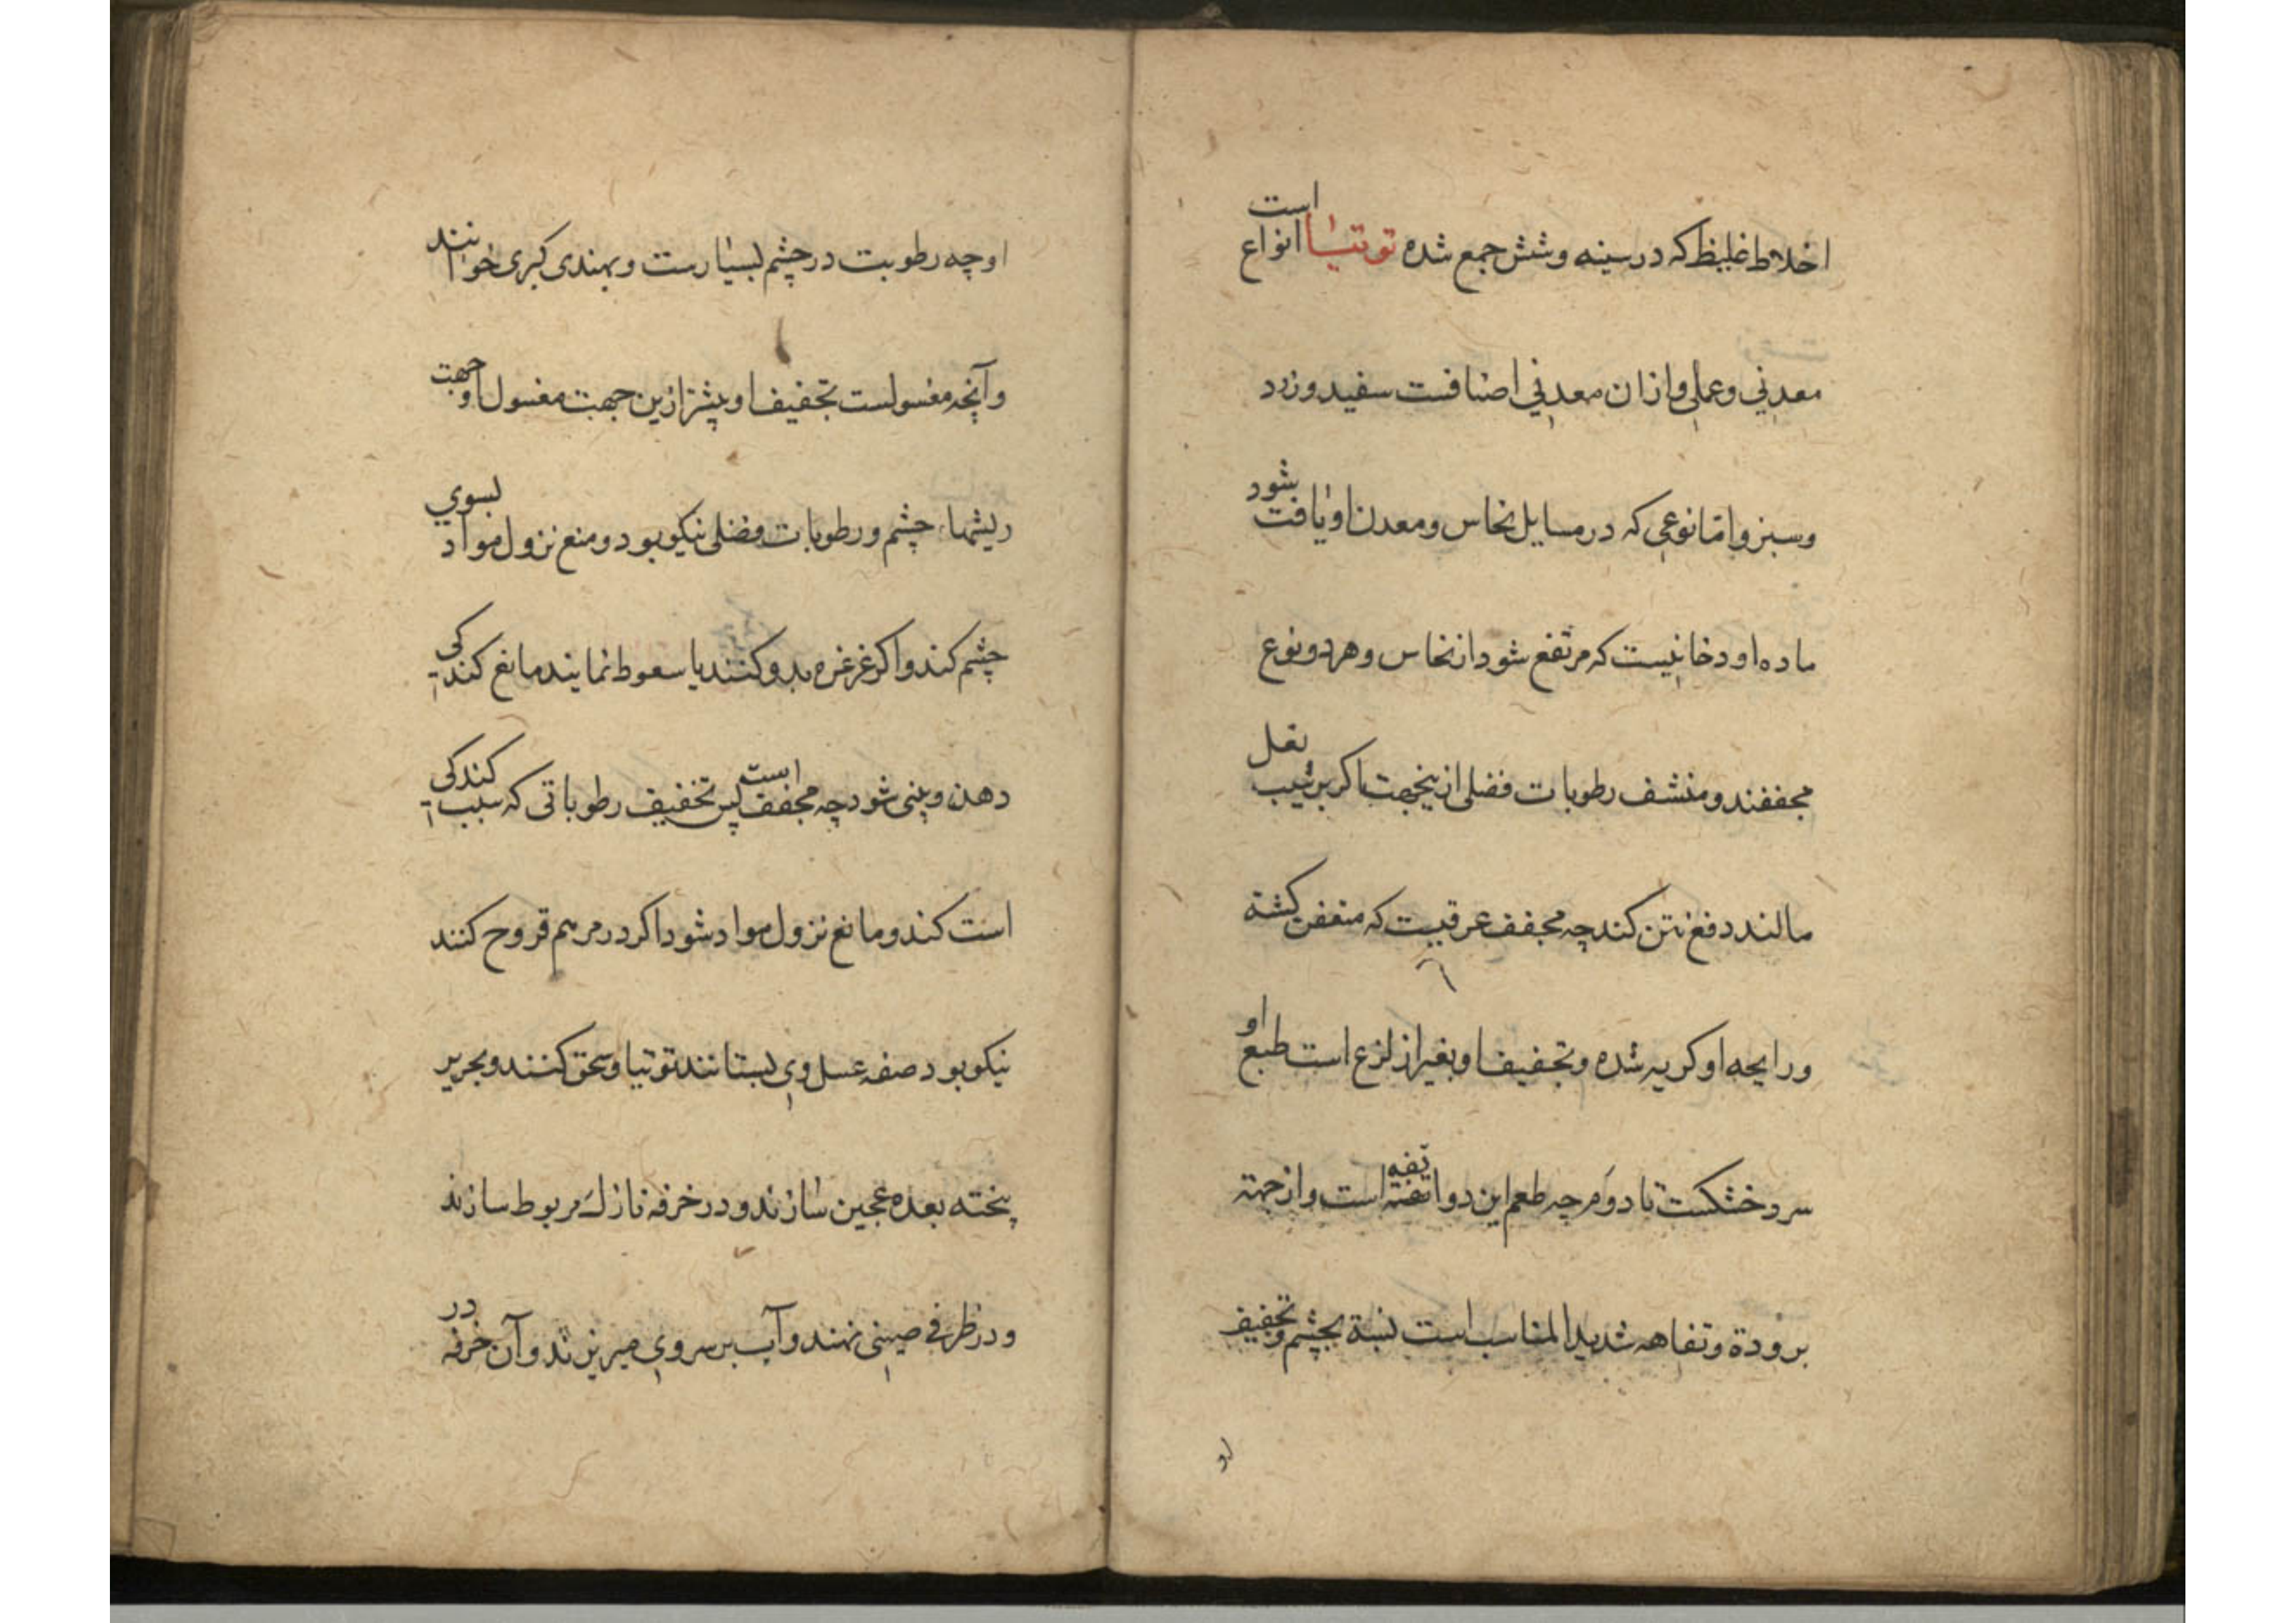 اخلاط غلیظ که در سینه و شش جمع شده توتیا انواع است
معدنی و عملی و ازان معدنی اصنافست سفید و زرد
وسبز و امّا نوعی که در مسایل نحاس و معدن او یافت بشود
ماده او دخانیست که مرتفع شود از نحاس و هر دو نوع
مجففند و منشف رطوبات فضلی ازینجهت اکر بر بغل
مالند دفع نتن کند چه مجفف عرقیست که متعفن کشته
و رایحه او کریه شده و تجفیف او بغیر از لزع است طبع او
سرد خشکست تا دوم چه طعم این دوا تفه است و از جهة
برودة و تفاهه شدید المناسب است نسبة بچشم و تجفیف
او
او چه رطوبت در چشم بسیارست و بهندی کبری خوانند
و آنچه مغسولست تجفیف او بیشتر ازین جهت مغسول او جهت
ریشهاء چشم و رطوبات فضلی نیکو بود و منع نزول مواد بسوی
چشم کند و اکر غرغره بدو کنند یا سعوط نمایند مانع کند کی
دهن و بینی شود چه مجفف است پس تخفیف رطوباتی که سبب کند کی
است کند و مانع نزول مواد شود اکر در مرهم قروح کنند
نیکو بود صفه غسل وی بستانند توتیا و سحق کنند و بحریر
پخته بعده عجین سازند و در خرفه نازک مربوط سازند
و در ظرفی صینی نهند و آب بر سر وی میریزند و آن خرفه در